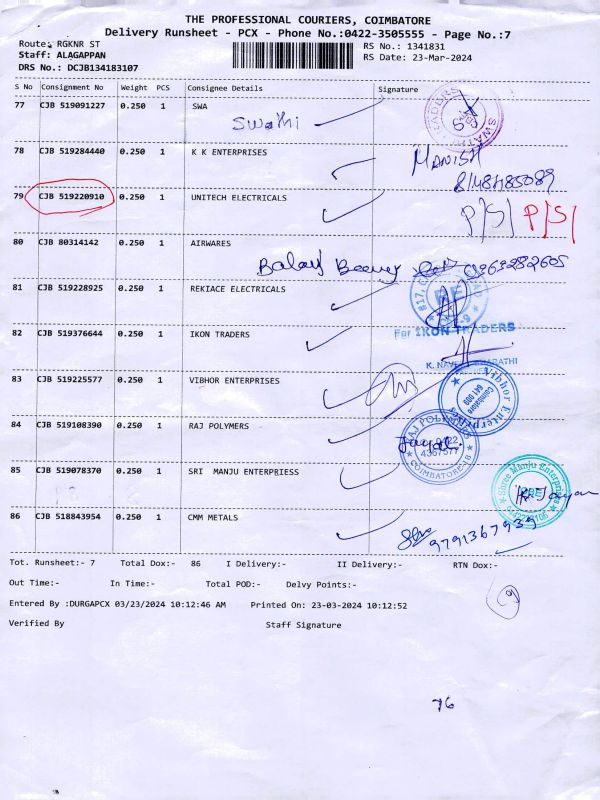 THE PROFESSIONAL COURIERS, COIMBATORE
Delivery Runsheet - PCX - Phone No.:0422-3505555 - Page No.:7
Route: RGKNR ST RS No.: 1341831
Staff: ALAGAPPAN RS Date: 23-Mar-2024
DRS No.: DCJB134183107
S No Consignment No Weight PCS Consignee Details Signature
77 CJB 519091227 0.250 1 SWA
Swathi
78 CJB 519284440 0.250 1 K K ENTERPRISES
MANISH
8148485089
79 CJB 519220910 0.250 1 UNITECH ELECTRICALS
P/S/ P/S/
80 CJB 80314142 0.250 1 AIRWARES
81 CJB 519228925 0.250 1 REKIACE ELECTRICALS
For IKON TRADERS
82 CJB 519376644 0.250 1 IKON TRADERS
83 CJB 519225577 0.250 1 VIBHOR ENTERPRISES
Vibhor Enterprises
Coimbatore
641 009
84 CJB 519108390 0.250 1 RAJ POLYMERS
RAJ POLYMERS
0422
4367577
COIMBATORE-18
85 CJB 519078370 0.250 1 SRI MANJU ENTERPRIESS
Shree Manju Enterprises
86 CJB 518843954 0.250 1 CMM METALS
9791367939
Tot. Runsheet:- 7 Total Dox:- 86 I Delivery:- II Delivery:- RTN Dox:-
Out Time:- In Time:- Total POD:- Delvy Points:-
Entered By :DURGAPCX 03/23/2024 10:12:46 AM Printed On: 23-03-2024 10:12:52
Verified By Staff Signature
76